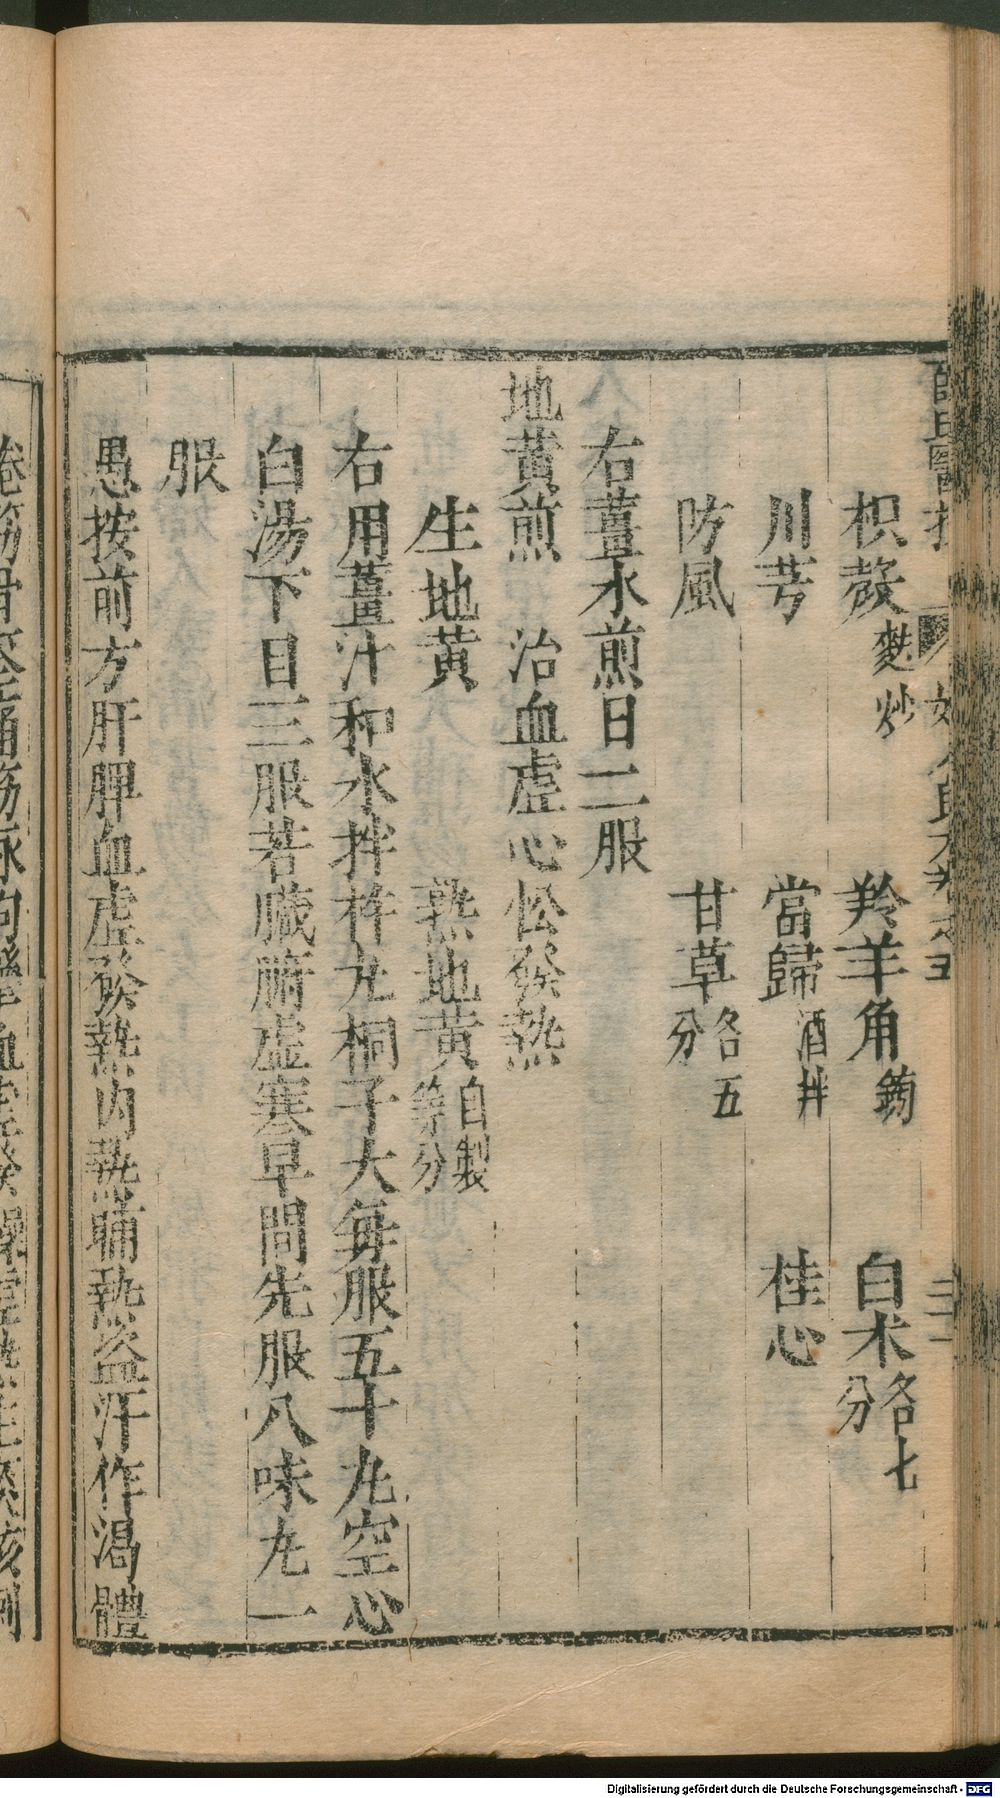 枳殼麩炒 羚羊角鎊 白朮各七分
川芎 當歸酒拌 桂心
防風 甘草各五分
右薑水煎日二服
地黃煎 治血虛心忪發熱
生地黃 熟地黃自製等分
右用薑汁和水拌杵丸桐子大每服五十丸空心
白湯下日三服若臟腑虛寒早間先服八味丸一
服
愚按前方肝脾血虛發熱內熱晡熱盜汗作渴體
Digitalisierung gefördert durch die Deutsche Forschungsgemeinschaft - DFG